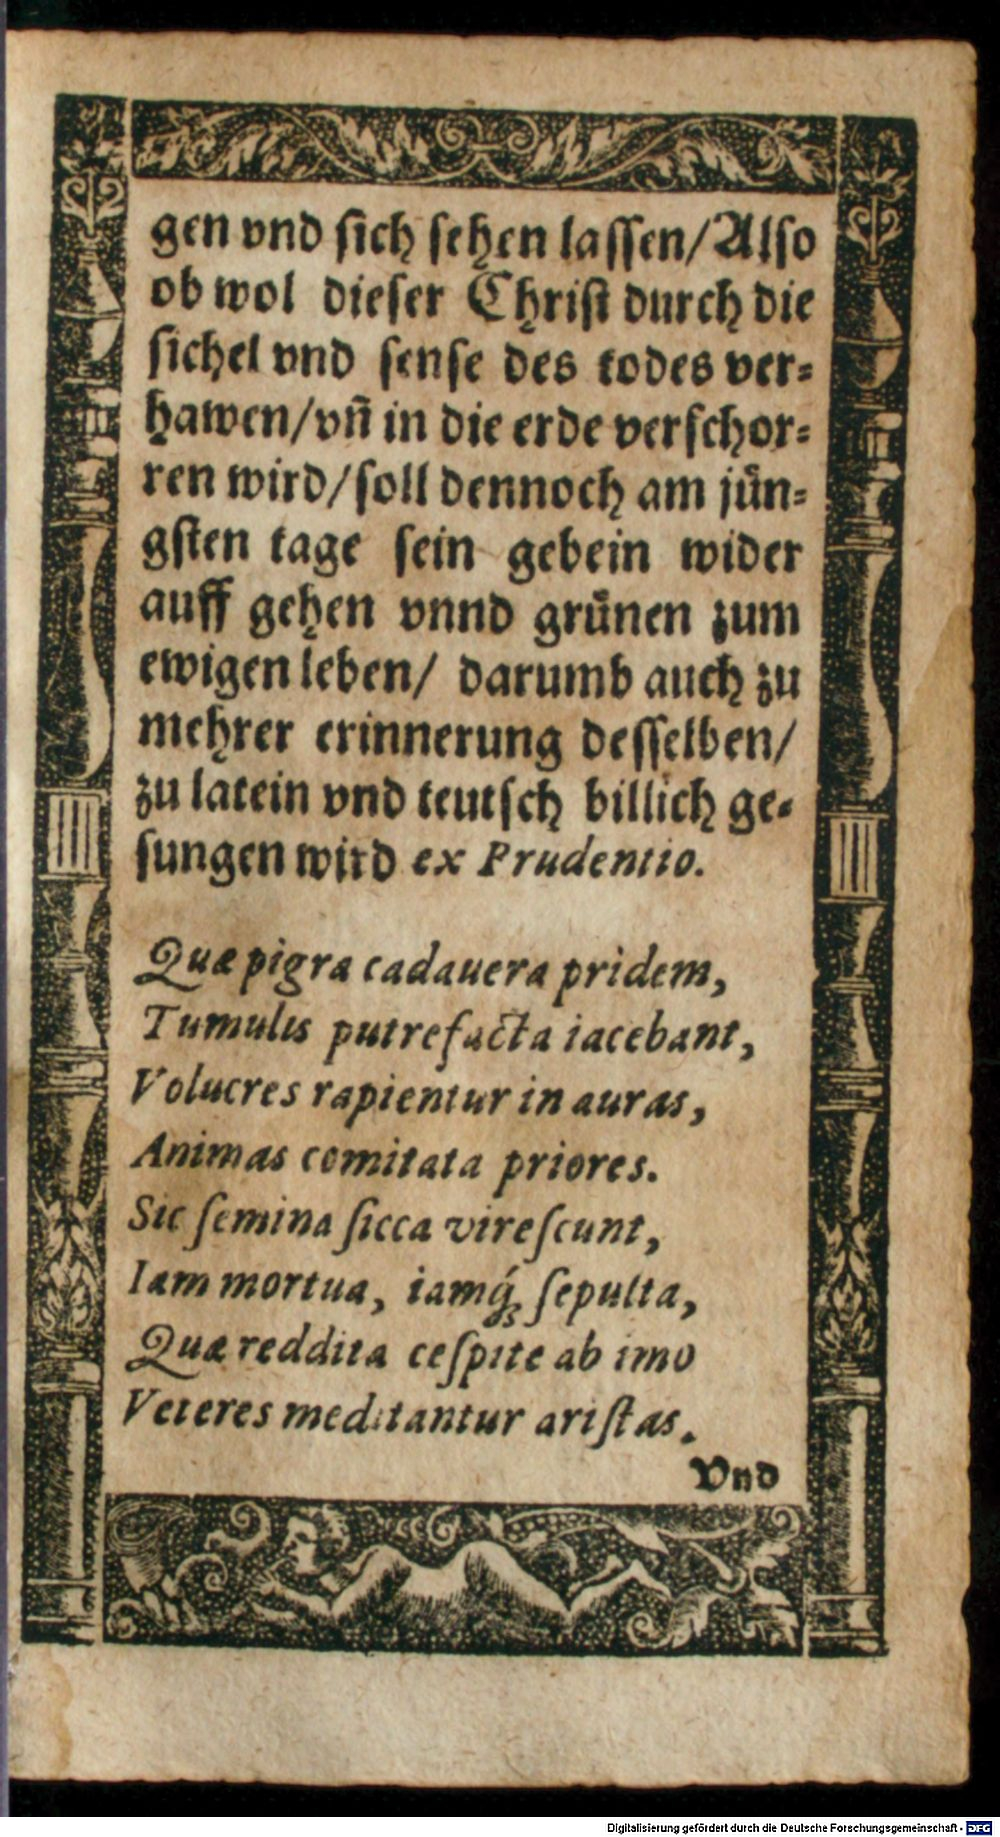 gen vnd ſich ſehen laſſen/Alſo
ob wol dieſer Chriſt durch die
ſichel vnd ſenſe des todes ver⸗
hawen/vñ in die erde verſchor⸗
ren wird/ſoll dennoch am jün⸗
gſten tage ſein gebein wider
auff gehen vnnd grünen zum
ewigen leben/ darumb auch zu
mehrer erinnerung deſſelben/
zu latein vnd teutſch billich ge⸗
ſungen wird ex Prudentio.
Quæ pigra cadauera pridem,
Tumulis putrefacta iacebant,
Volucres rapientur in auras,
Animas comitata priores.
Sic ſemina ſicca vireſcunt,
Iam mortua, iamq́; ſepulta,
Quæ reddita ceſpite ab imo
Veteres meditantur ariſtas.
Vnd
Digitalisierung gefördert durch die Deutsche Forschungsgemeinschaft - DFG